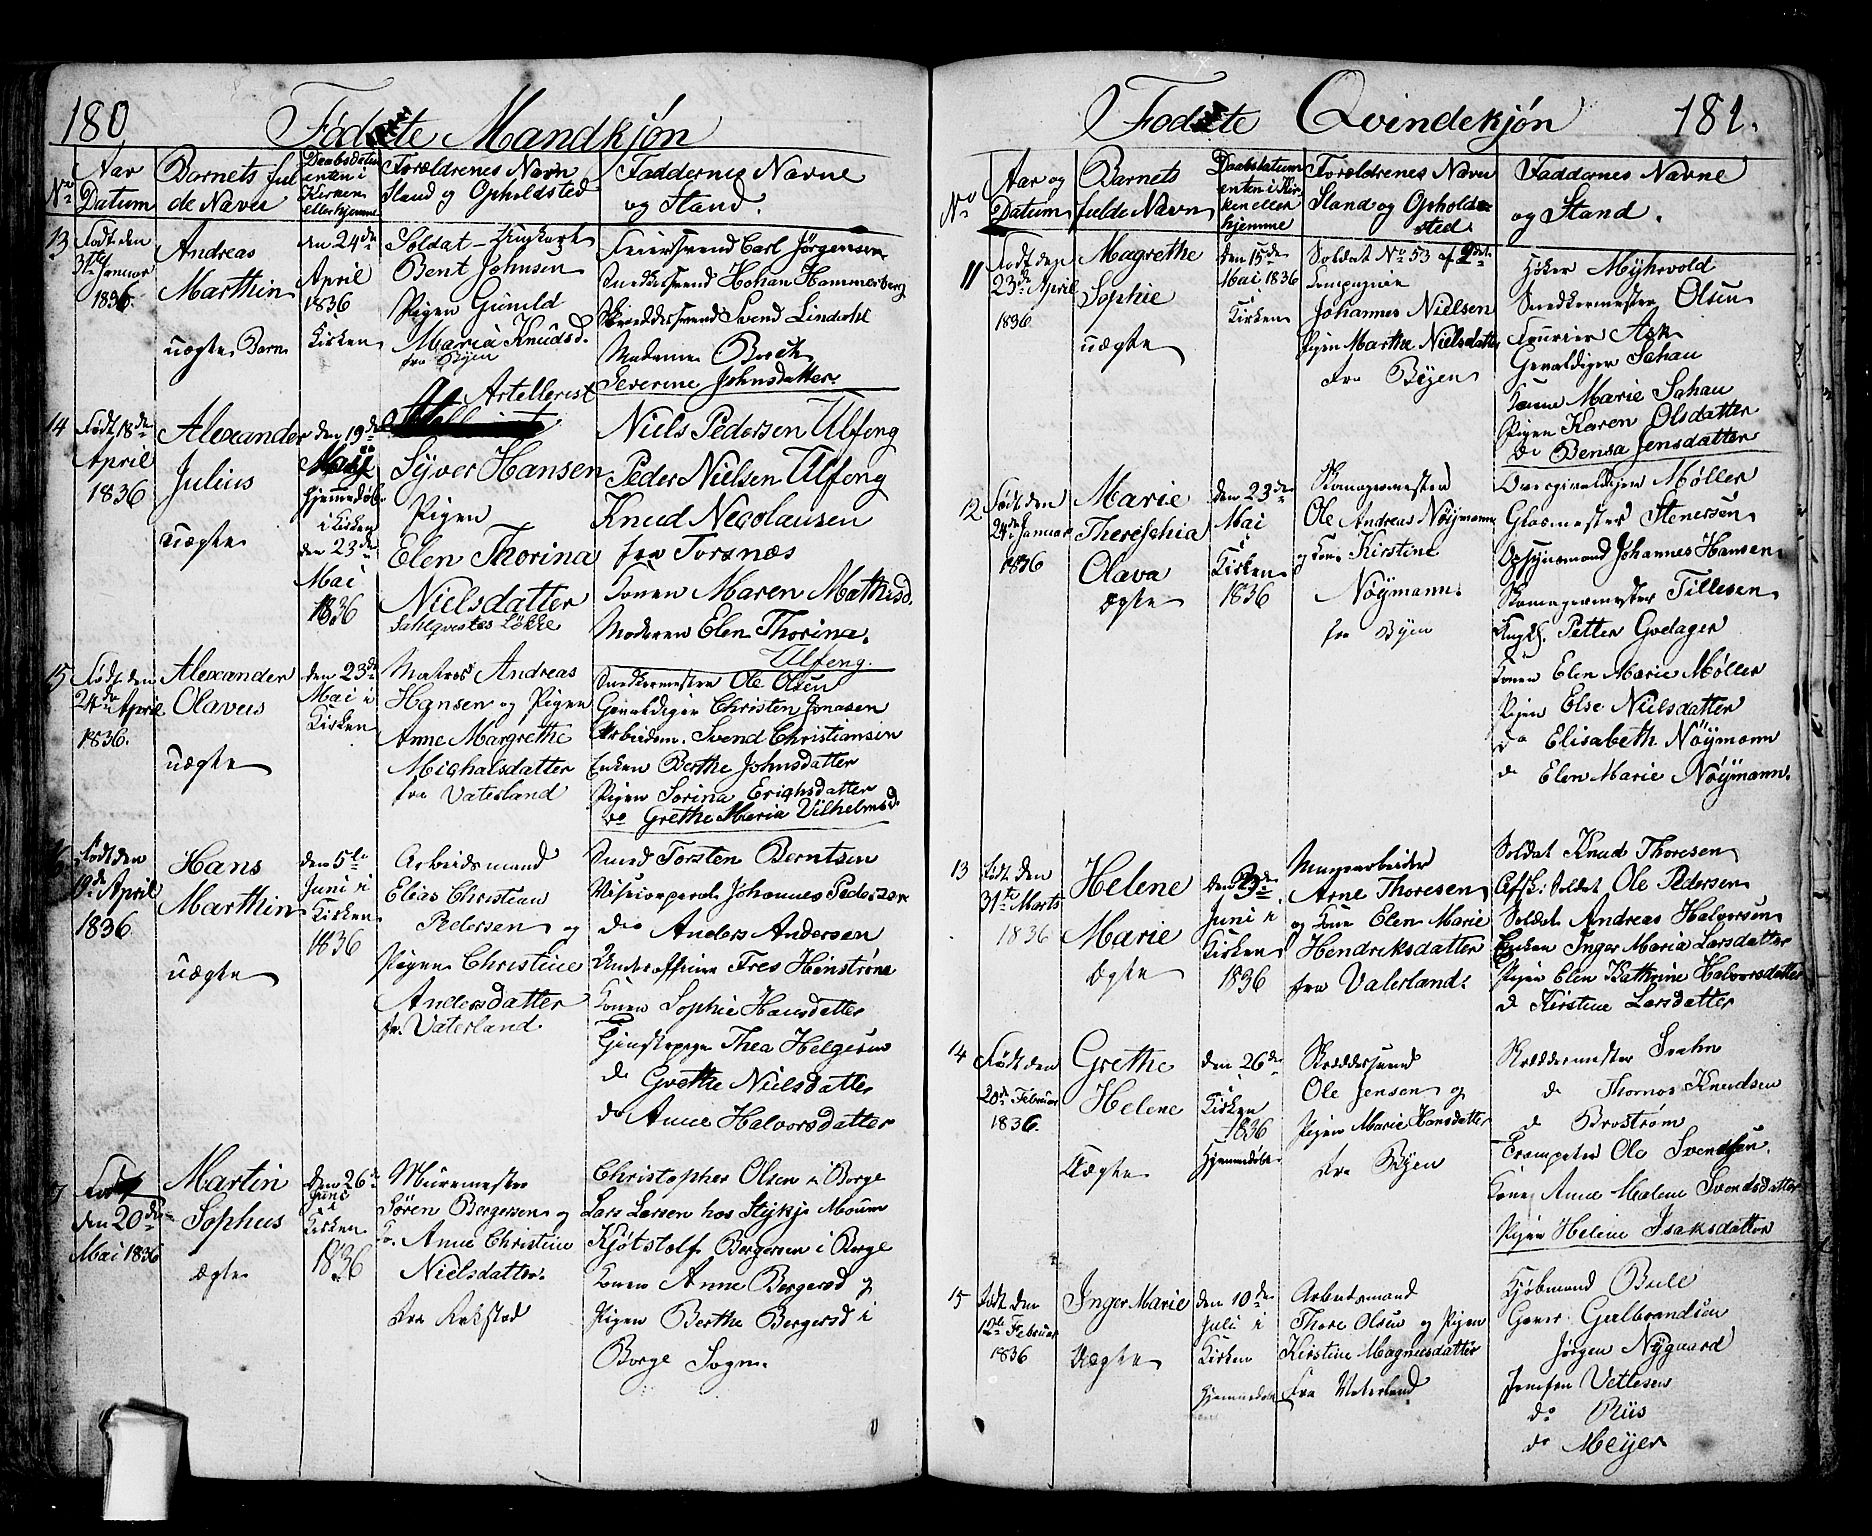 180
Fødte Mandkjøn
No
Aar
Datum
Barnets ful
de Navn
Daabsdatum
enten i
Kirken
eller hjemme
Forældrenes Navn
Stand og Opholdsted
Faddernes Navne
og Stand.
13
Født den
31te Januar
1836.
Andreas
Marthin
uægte Barn
den 24de
April
1836
Kirken
Soldat
Bent Johnsen
Pigen Gunild
Maria Knudsd.
fra Byen
Feiersvend Carl Jørgensen
Snedkersvend Johan Hammersberg
Skreddersvend Svend Lindahl
Madame Boeck
Severine Johnsdatter.
14
Født 18de
April
1836
Alexander
Julius
uægte
den 19de
Maji
hjemmedøbt
i Kirken
den 23de
Mai
1836
Artellerist
Syver Hansen
Pigen
Elen Thorina
Nielsdatter
Sahlqvistes Løkke
Niels Pedersen Ulfeng
Peder Nielsen Ulfeng
Knud Necolausen
fra Torsnæs
Konen Maren Mathisd.
Moderen Elen Thorina.
Ulfeng.
15
Født den
24de April
1836.
Alexander
Olaveus
uægte
den 23de
Mai i
Kirken
Matros Andreas
Hansen og Pigen
Anne Margrethe
Michalsdatter
fra Vaterland
Snedkermester Ole Olsen
Gevaldiger Christen Jonasen
Arbeidsm. Svend Christiansen
Enken Berthe Johnsdatter
Pigen Sorina Erichsdatter
do Grethe Maria Vilhelmsd.
Født den
19de April
1836
Hans
Marthin
uægte
den 5te
Juni i
Kirken
1836
Arbeidsmand
Elias Christian
Pedersen og
Pigen Christine
Andersdatter
fr. Vaterland.
Smed Torsten Berntsen
Johannes Pedersen
do Anders Andersen
Underofficer Fres Henstrøm
Konen Sophie Hansdatter
Tjenstepige Thea Helgesen
do Grethe Nielsdatter
do Anne Halvorsdatter
7
Født
den 20de
Mai 1836
Martin
Sophus
Ægte
den 26de
Juni
i
Kirken
1836
Muremester
Søren Bergersen og
K. Anne Christine
Nielsdatter.
Christopher Olsen i Borge
Lars Larsen hos Moum
Kjøtstolf Bergersen i Borge
Konen Anne Bergersd og
Pigen Berthe Bergersd i
Borge Sogn.
Fødte Qvindekjøn
181.
No
Aar og
Datum
Barnets
fulde Navn
Daabsdatum
enten i Kir
ken eller
hjemme
Forældrenes Navn
Stand og Ophold
sted
Faddernes Navne
og Stand.
11
Født den
23de April
1836
Magrethe
Sophie
uægte
den 15de
Mai 1836
Kirken
Soldat No 53 af 2det
Compagnie
Johannes Nielsen
Pigen Marthe Nielsdatter
fra Byen
Høker Myhrvold
Snedkermester Olsen
Fourier Ask
Gevaldiger Schau
Konen Marie Schau
Pigen Karen Olsdatter
do Bensa Jensdatter
12
Født den
24de Januar
1836
Marie
Thereschia
Olava
Ægte
den 23de
Mai
i
Kirken
1836
Skomagermester
Ole Andreas Nøymann
og Kone Kirstine
Nøymann.
fra Byen
Overgivaldiger Møller
Glasmester Stenersen
Opsynsmand Johannes Hansen
Skomagermester Tillesen
Petter Gvelager
Konen Elen Marie Møller
Pigen Else Nielsdatter
do Elisabeth Nøymann
do Elen Marie Nøymann.
13
Født den
31te Marts
1836
Helene
Marie
Ægte
Juni i
Kirken
1836
Arne Thoresen
og Kone Elen Marie
Hendriksdatter
fra Vaterland.
Soldat Knud Thoresen
Afsk. Soldat Ole Pedersen
Soldat Andreas Halvorsen
Enken Inger Maria Larsdatter
Pigen Elen Kathrine Halvorsdatter
d Kirstine Larsdatter
14
Født den
20de Februar
1836.
Grethe
Helene
Uægte
den 26de
i
Kirken
1836
Hjemmedøbt
Skreddersvend
Ole Jensen og
Pigen Marie Hansdatter
fra Byen
Skreddermester Svahn
d. Thomas Knudsen
d Brostrøm
Trompeter Ole Svendsen.
Kone Anne Malene Svendsdatter
Pigen Helene Isaksdatter
15
Født den
12te Februar
1836
Inger Marie
Uægte
den 10de
Juli i
Kirken
Hjemmedøbt
Arbeidsmand
Thore Olsen og Pigen
Kirstine Magnusdatter
fra Vaterland
Kjøbmand Bull
Gulbrandsen
Jørgen Nygaard
Jomfru Vettesen
do Riis
do Meyer